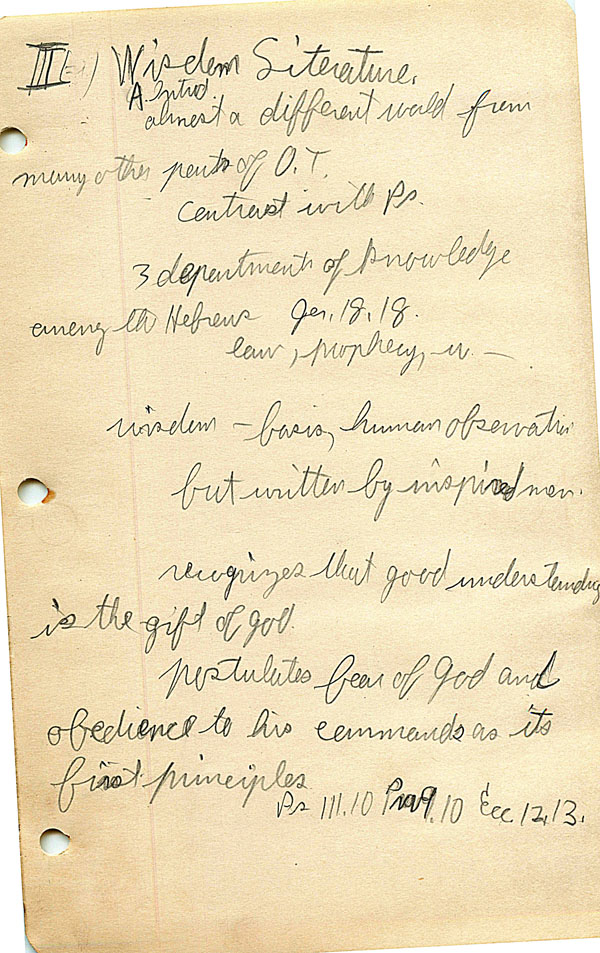 III) Wisdom Literature.
A. Introd.
almost a different world from
many other parts of O.T.
contrast with Ps.
3 departments of knowledge
among the Hebrews Jer. 18.18.
law, prophecy, w. —
wisdom – basis, human observation
but written by inspired men.
recognizes that good understanding
is the gift of God.
postulates fear of God and
obedience to his commands as its
first principles
Ps 111.10 Prov 9.10 Ecc 12.13.